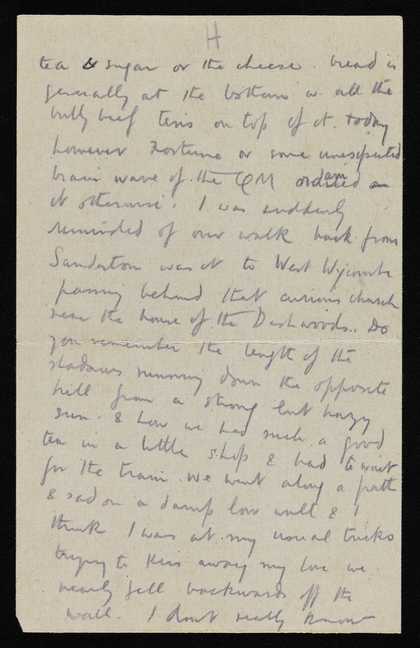 H
tea & sugar or the cheese. bread is
generally at the bottom w. all the
bully beef tins on top of it. today
however Fortune or some unexpected
brain wave of the QM ordained
it otherwise. I was suddenly
reminded of our walk back from
Saunderton was it to West Wycombe
passing behind that curious church
near the house of the Dashwoods.. Do
you remember the length of the
shadows running down the opposite
hill from a strong but hazy
sun. & how we had such a good
tea in a little shop & had to wait
for the train. We went along a path
& sad on a damp low wall & I
think I was at my usual tricks
trying to kiss away my love we
nearly fell backwards off the
wall. I dont really know